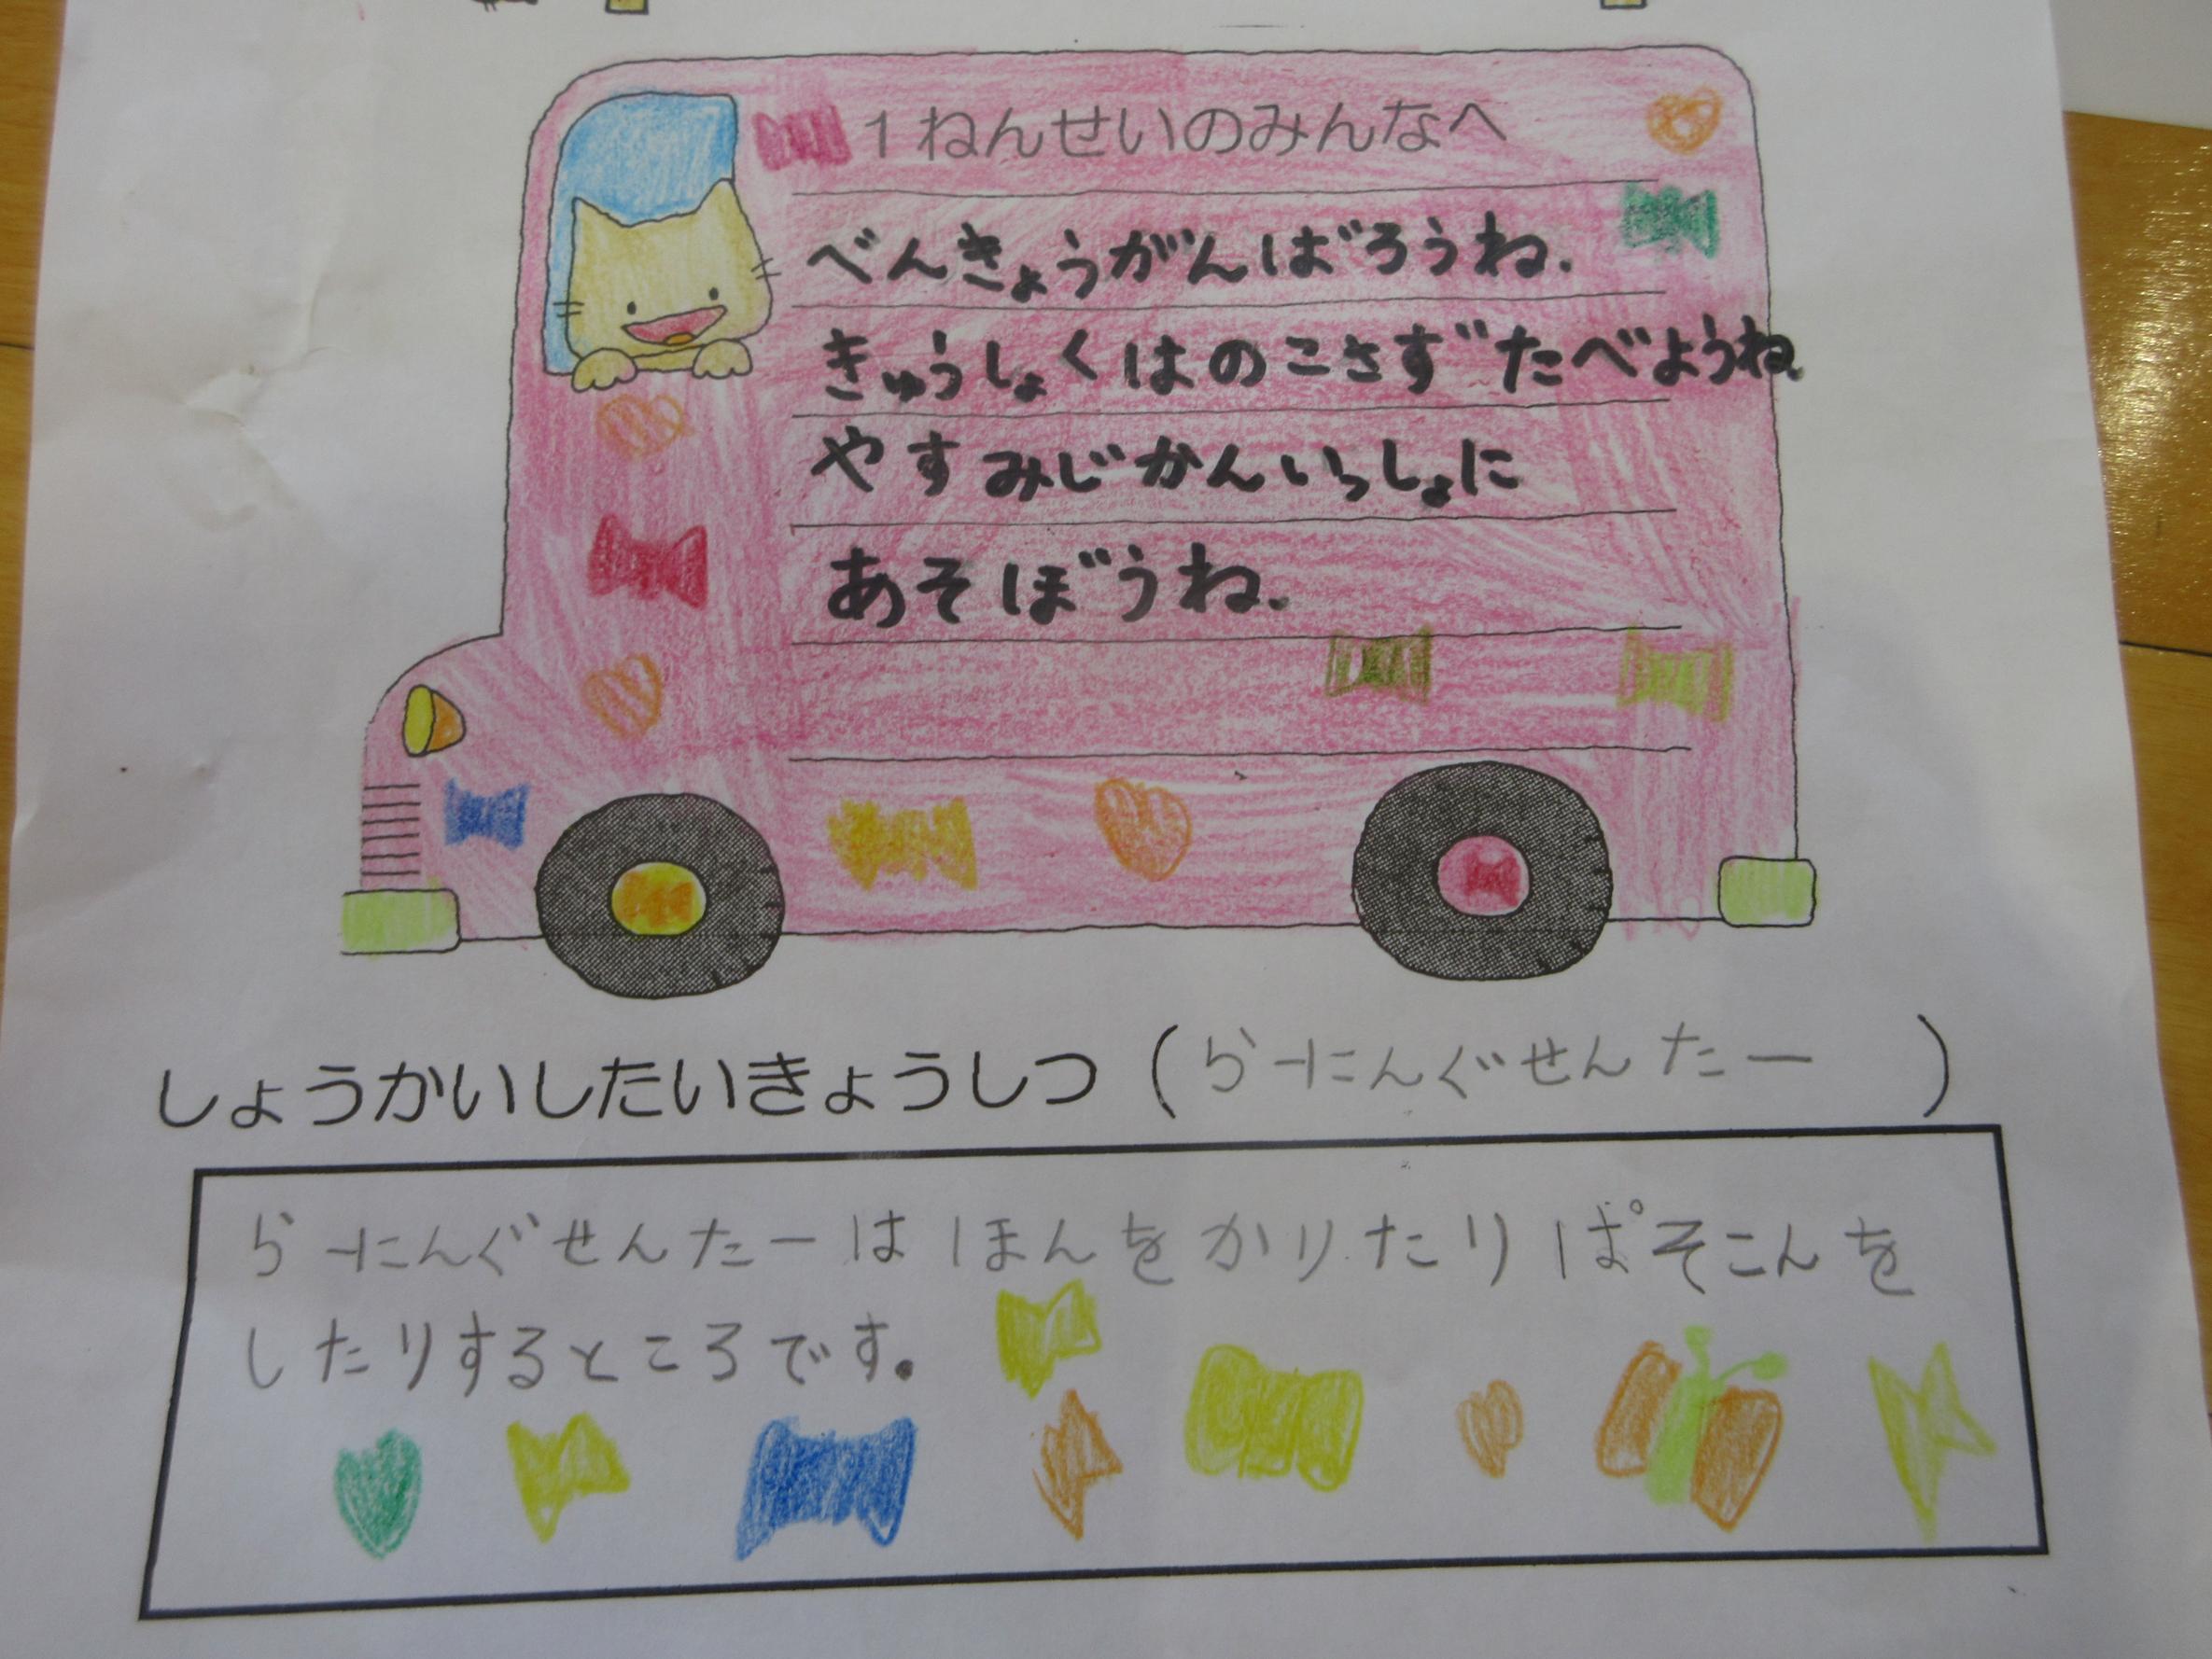 1ねんせいのみんなへ
べんきょうがんばろうね.
きゅうしょくはのこさずたべようね.
やすみじかんいっしょに
あそぼうね.
しょうかいしたいきょうしつ(らーにんぐせんたー)
らーにんぐせんたーはほんをかりたりぱそこんを
したりするところです。